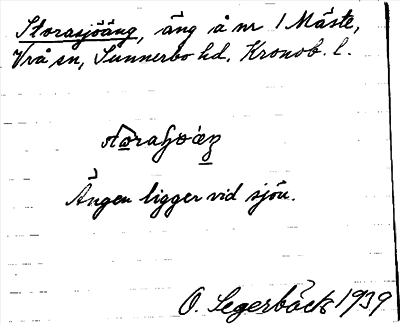 Storasjöäng, äng å nr 1 Måste,
Vrå sn, Sunnerbo hd. Kronob. l.
Ängen ligger vid sjön.
O. Segerbäck 1939